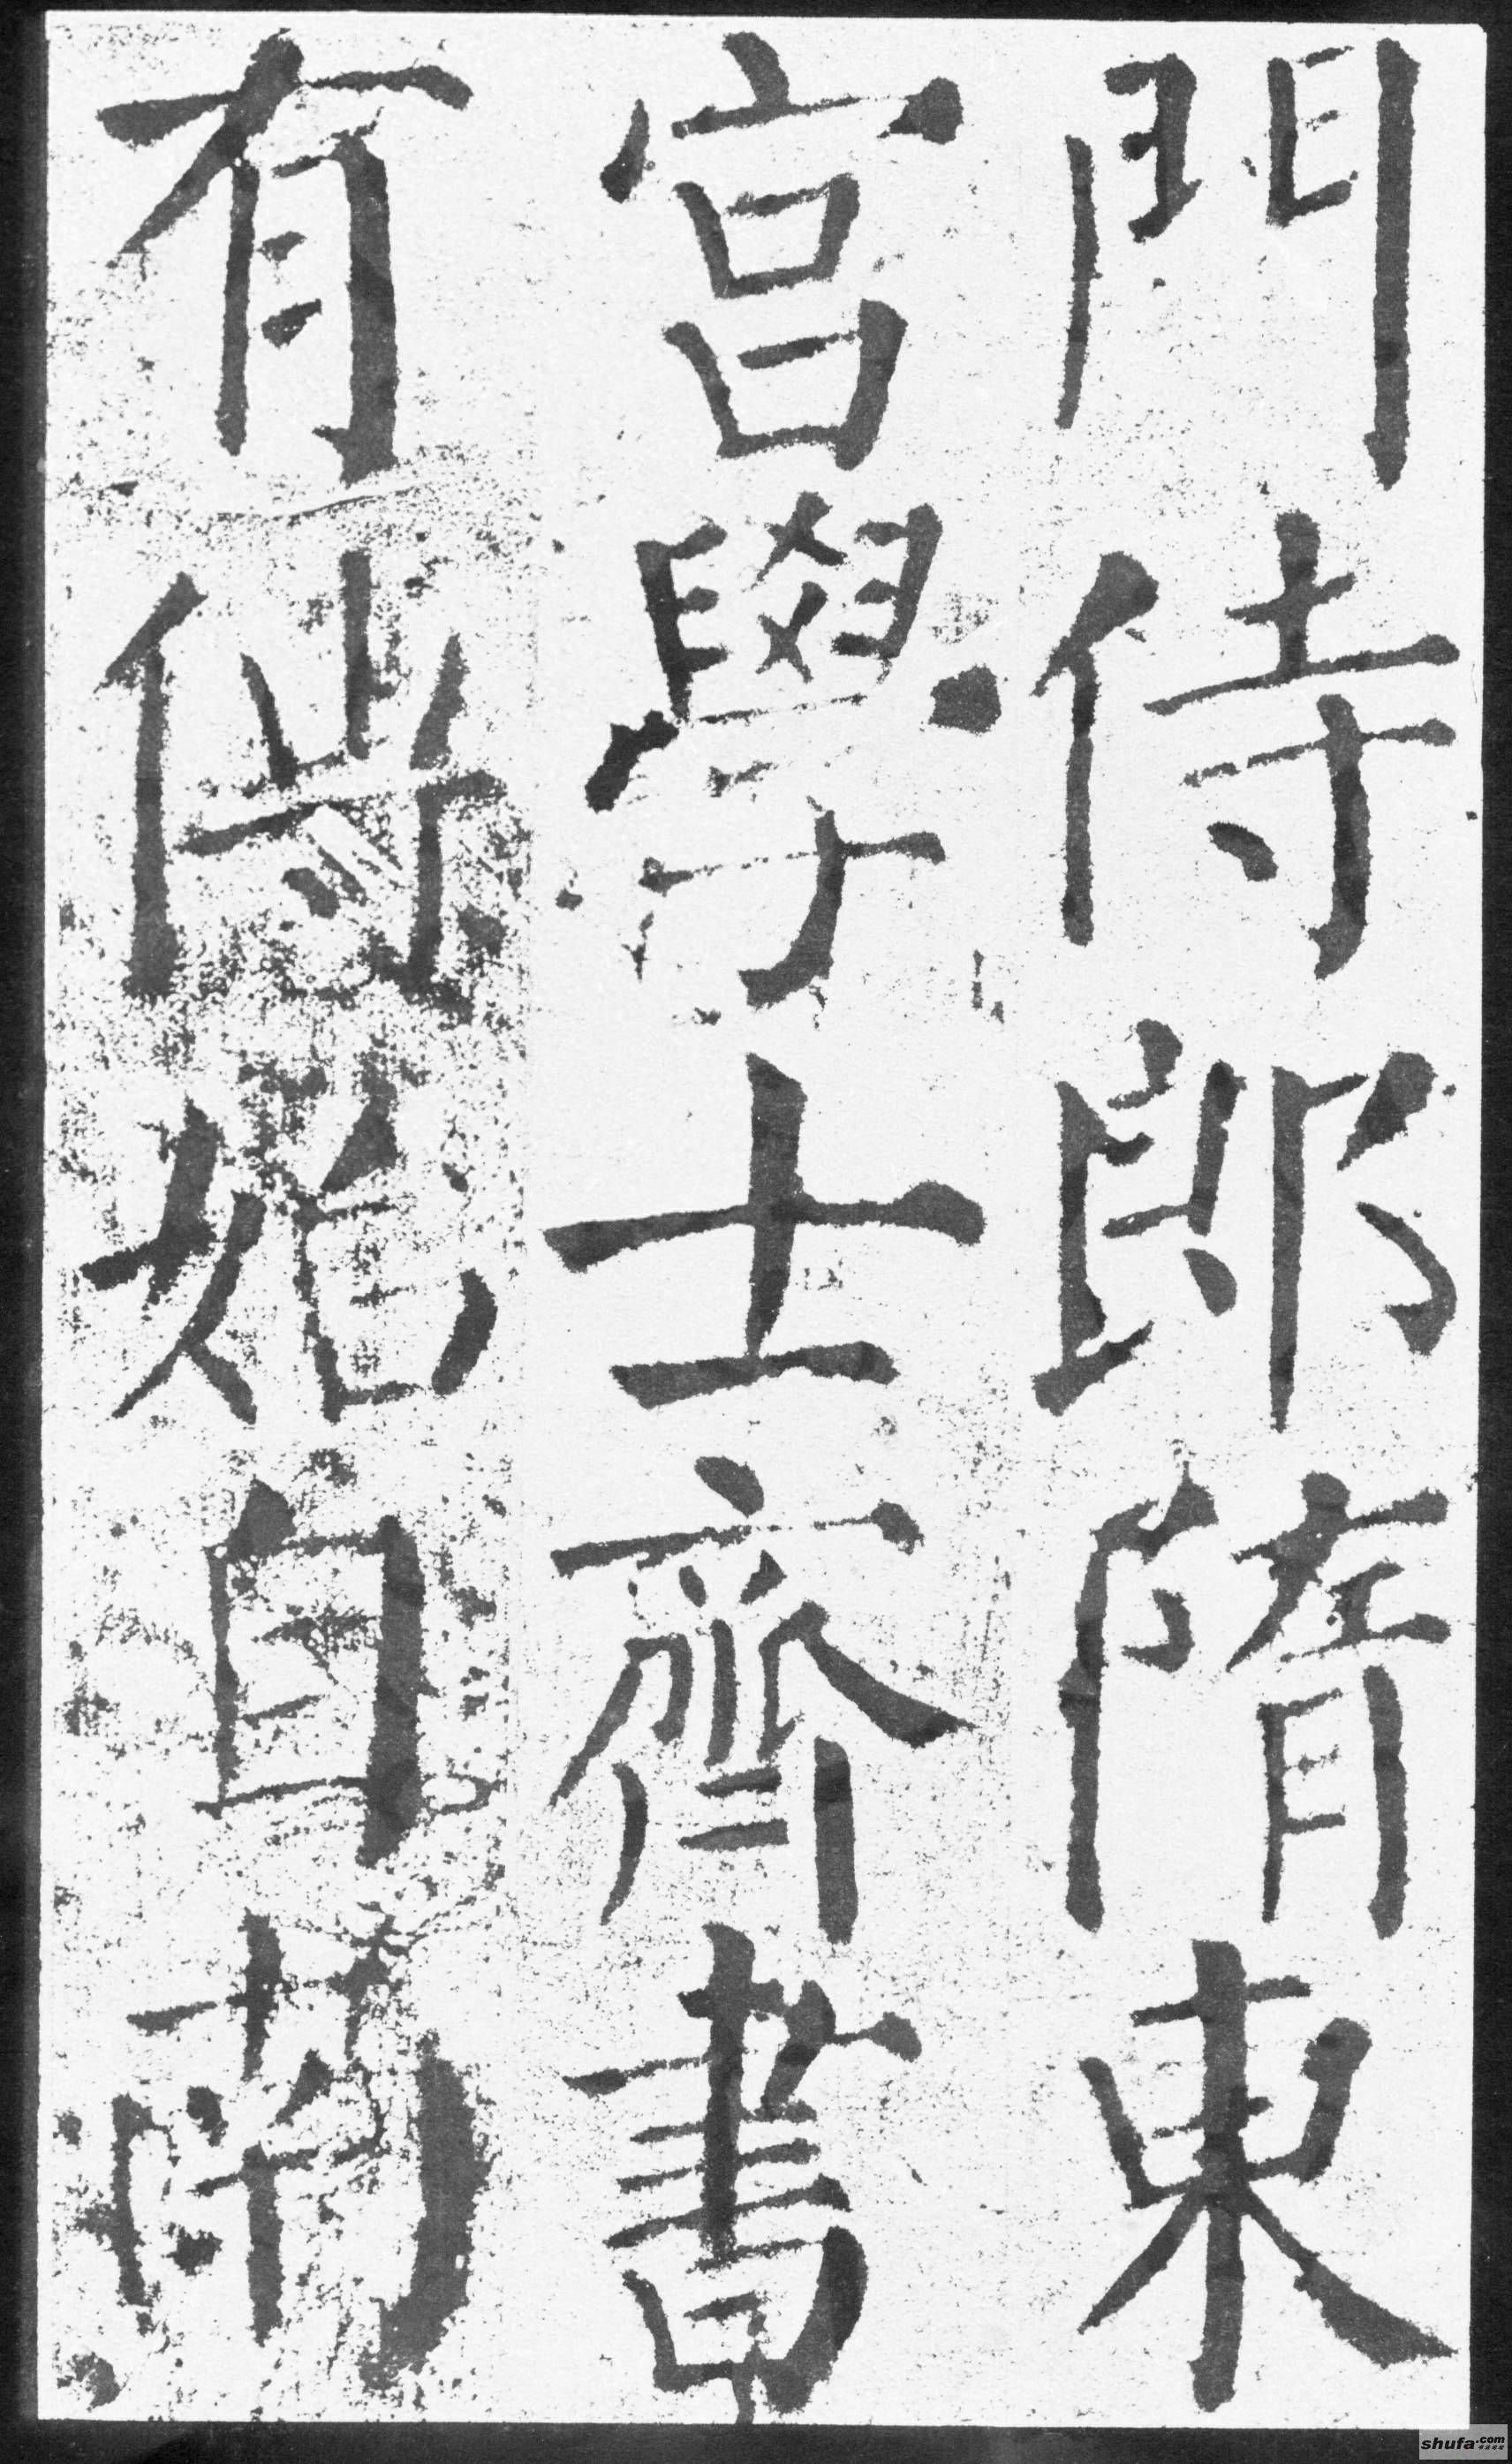 門侍郎隋東
宮學士齊書
有傳始自南
shufa.com